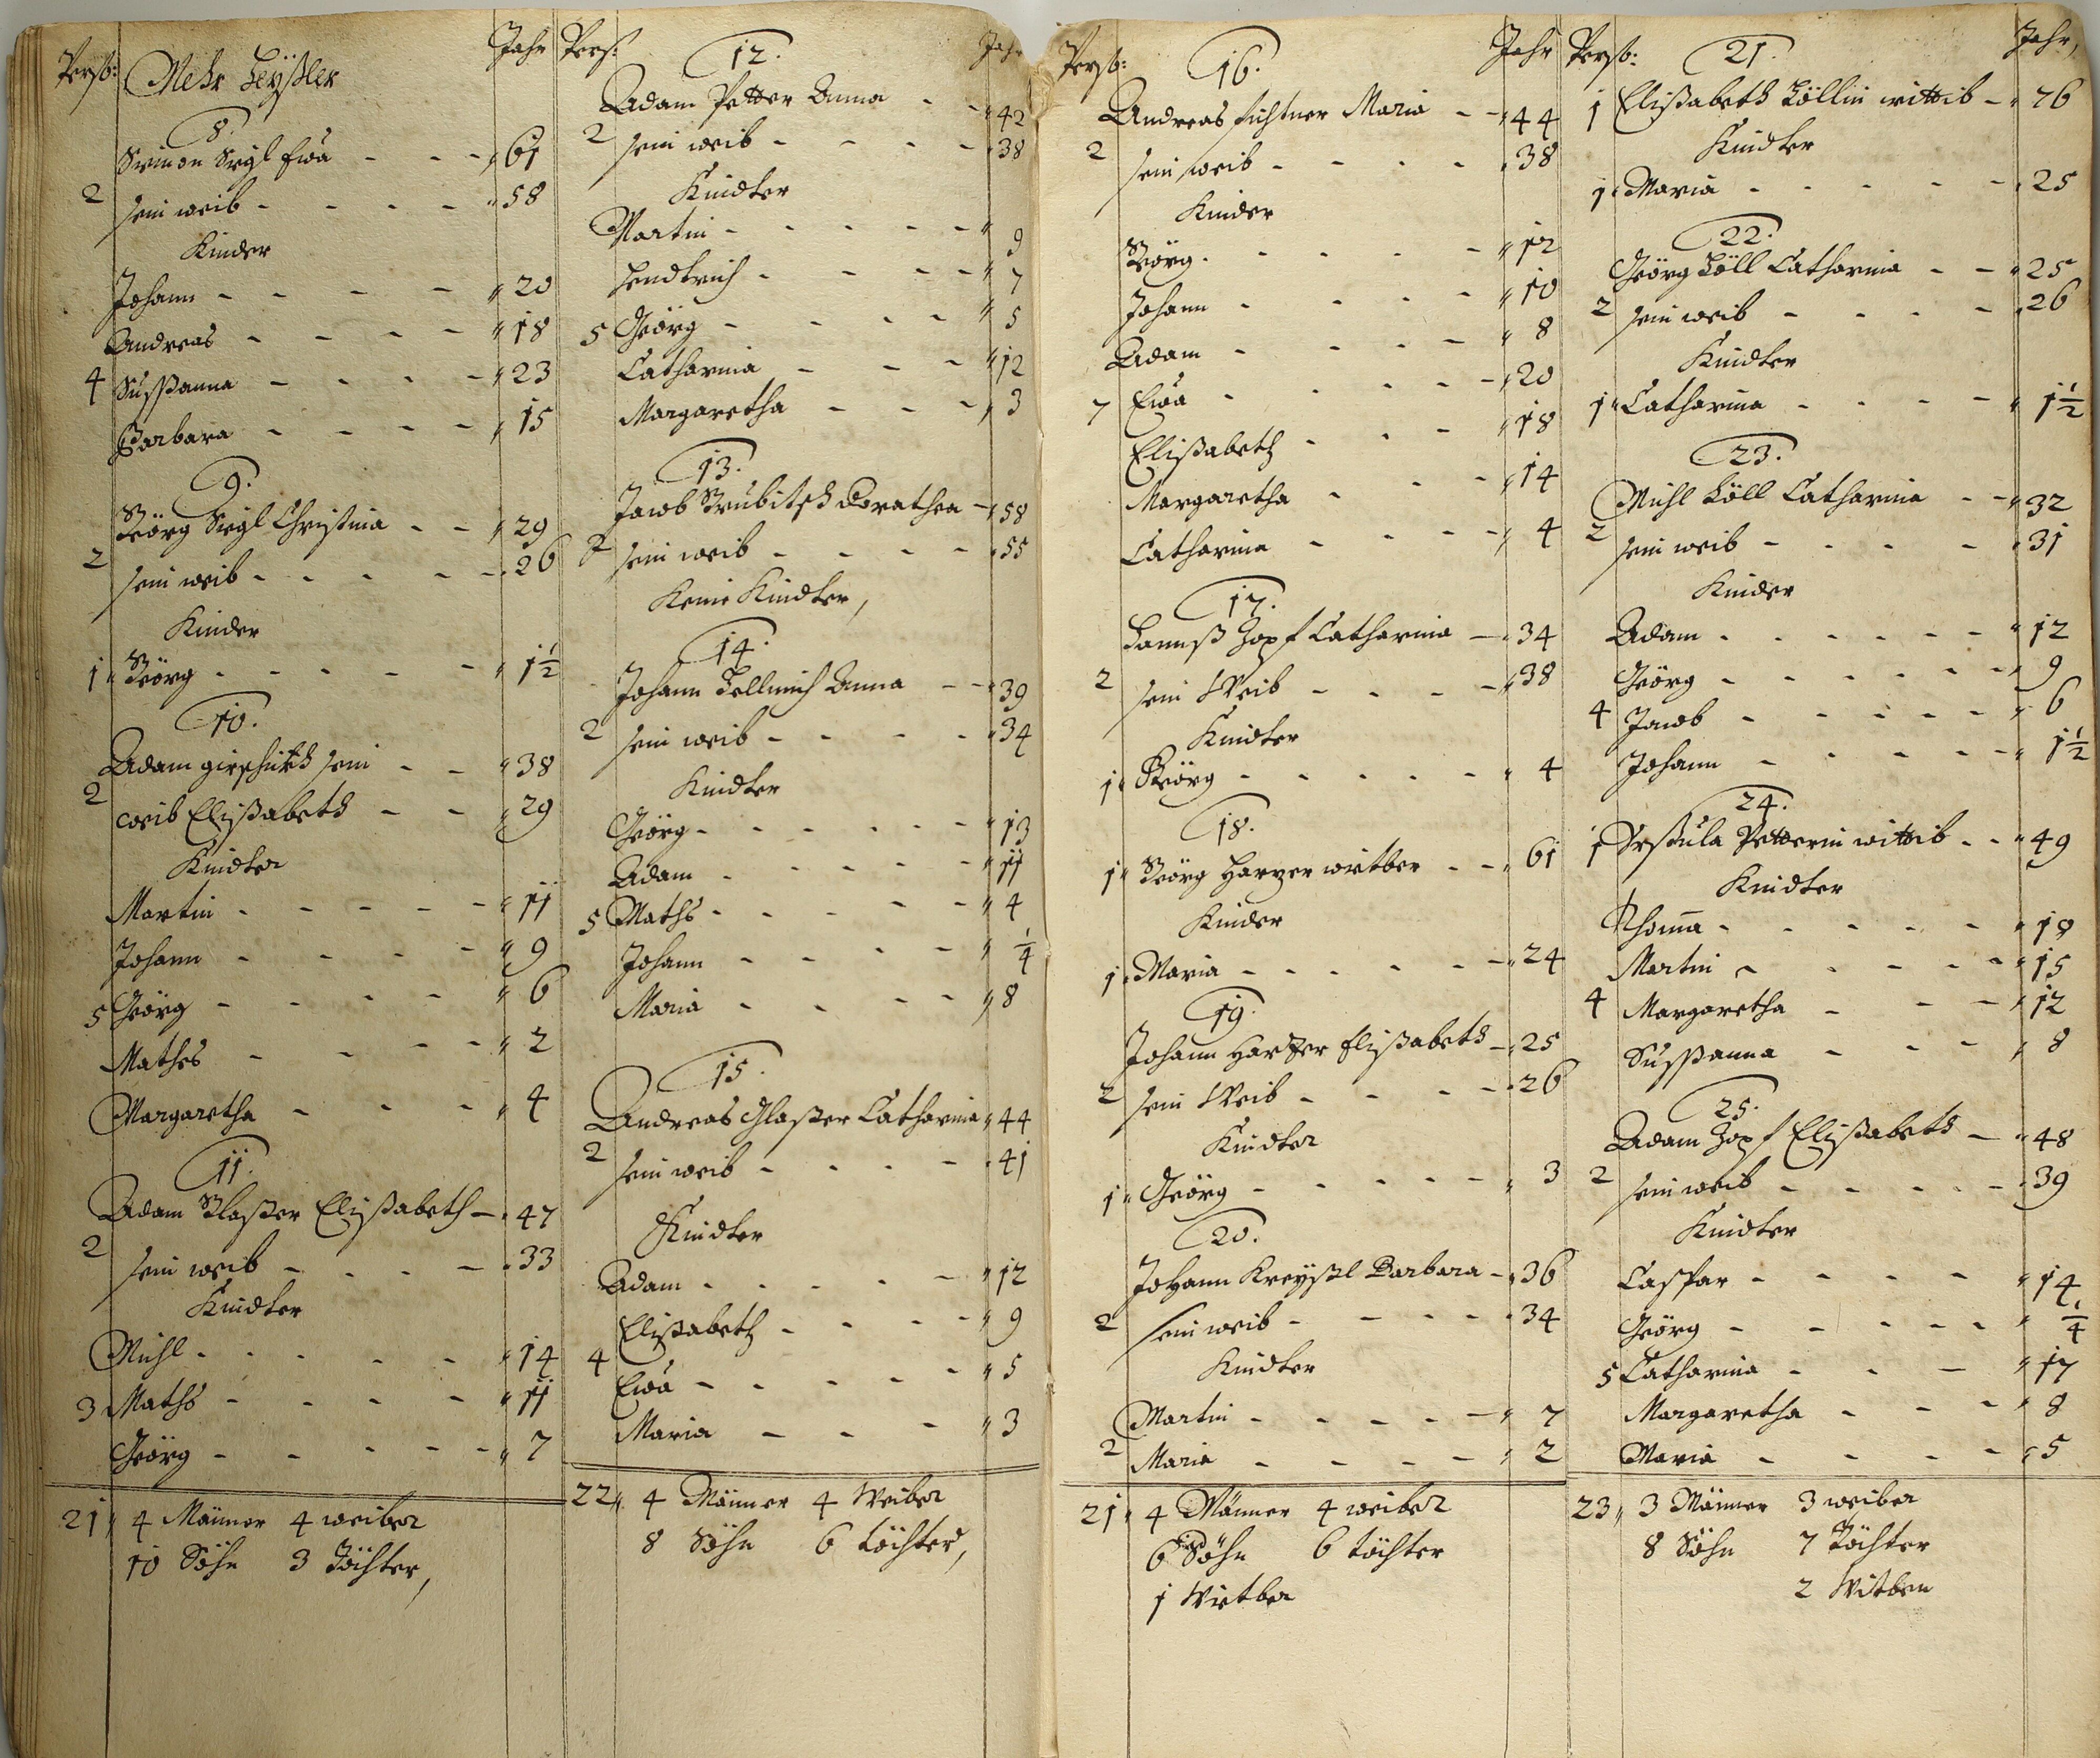 Perso: Mehr Heyßler Jahr
8.
Simon Sigl Ewa - - - 61
2 sein weib - - - - 58
Kinder
Johann - - - - 20
Andreas - - - - 18
4 Sussanna - - - - 23
Barbara - - - - 15
9.
Geörg Sigl Christina - - 29
2 sein weib - - - - - 26
Kinder
1 Geörg - - - - - 1½
10.
Adam sein - - 38
2 weib Elißabeth - - 29
Kindter
Martin - - - - - 11
Johann - - - - 9
5 Geörg - - - - 6
Mathes - - - - 2
Margaretha - - - 4
11.
Adam Glaßer Elißabeth - 47
2 sein weib - - - - 33
Kindter
Michl - - - - - 14
3 Maths - - - - 11
Geörg - - - - - 7
21, 4 Männer 4 weiber
10 Söhn 3 Töchter,
Pers: 12. Jahr
Adam Petter Anna - - 42
2 sein weib - - - - 38
Kindter
Martin - - - - - 9
Hendtrich - - - - 7
5 Geörg - - - - 5
Catharina - - - 12
Margaretha - - - 3
13.
Jacob Dorathea - 58
2 sein weib - - - - 55
Keine Kindter,
14.
Johann Anna - - 39
2 sein weib - - - - 34
Kindter
Geörg - - - - - - 13
Adam - - - - - 11
5 Maths - - - - - 4
Johann - - - - ¼
Maria - - - - 8
15.
Andreas Glaßer Catharina 44
2 sein weib - - - - 41
Kindter
Adam - - - - - 12
Elißabeth - - - - 9
4
Ewa - - - - - 5
Maria - - - 3
22, 4 Männer 4 Weiber
8 Söhn 6 töchter,
Perso: 16. Jahr
Andreas Fichtner Maria - - 44
2 sein weib - - - - 38
Kinder
Geörg - - - - - 12
Johann - - - - 10
Adam - - - - 8
7 Ewa - - - - - 20
Elißabeth - - - 18
Margaretha - - - 14
Catharina - - - - 4
17.
Hannß Zopf Catharina - 34
2 sein Weib - - - - 38
Kindter
1 Geörg - - - - - 4
18.
1 Geörg Harzer witber - - 61
Kinder
1 Maria - - - - - - 24
19.
Johann Harzer Elißabeth - 25
2 sein Weib - - - - 26
Kindter
1 Geörg - - - - - 3
20.
Johann Kreyßl Barbara - 36
2 sein weib - - - - 34
Kindter
Martin - - - - - 7
2 Maria - - - - - 2
21, 4 Männer 4 weiber
6 Söhn 6 töchter
1 Witber
Perso: 21. Jahr,
1 Elißabeth Zöllin wittib - 76
Kindter
1 Maria - - - - - 25
22.
Geörg Zöll Catharina - - 25
2 sein weib - - - - 26
Kindter
1 Catharina - - - - 1½
23.
Michl Zöll Catharina - - 32
2 sein weib - - - - 31
Kinder
Adam - - - - - - 12
Geörg - - - - - - 9
4 Jacob - - - - - 6
Johann - - - - - 1½
24.
1 Urßula Petterin wittib - - 49
Kindter
Thoma - - - - - 18
Martin - - - - 15
4 Margaretha - - - 12
Sussanna - - - 8
25.
Adam Zopf Elißabeth - 48
2 sein weib - - - - - 39
Kindter
Caspar - - - - 14
Geörg - - - - - ¼
5 Catharina - - - 17
Margaretha - - - 8
Maria - - - - 5
23, 3 Männer 3 weiber
8 Söhn 7 Töchter
2 Witben